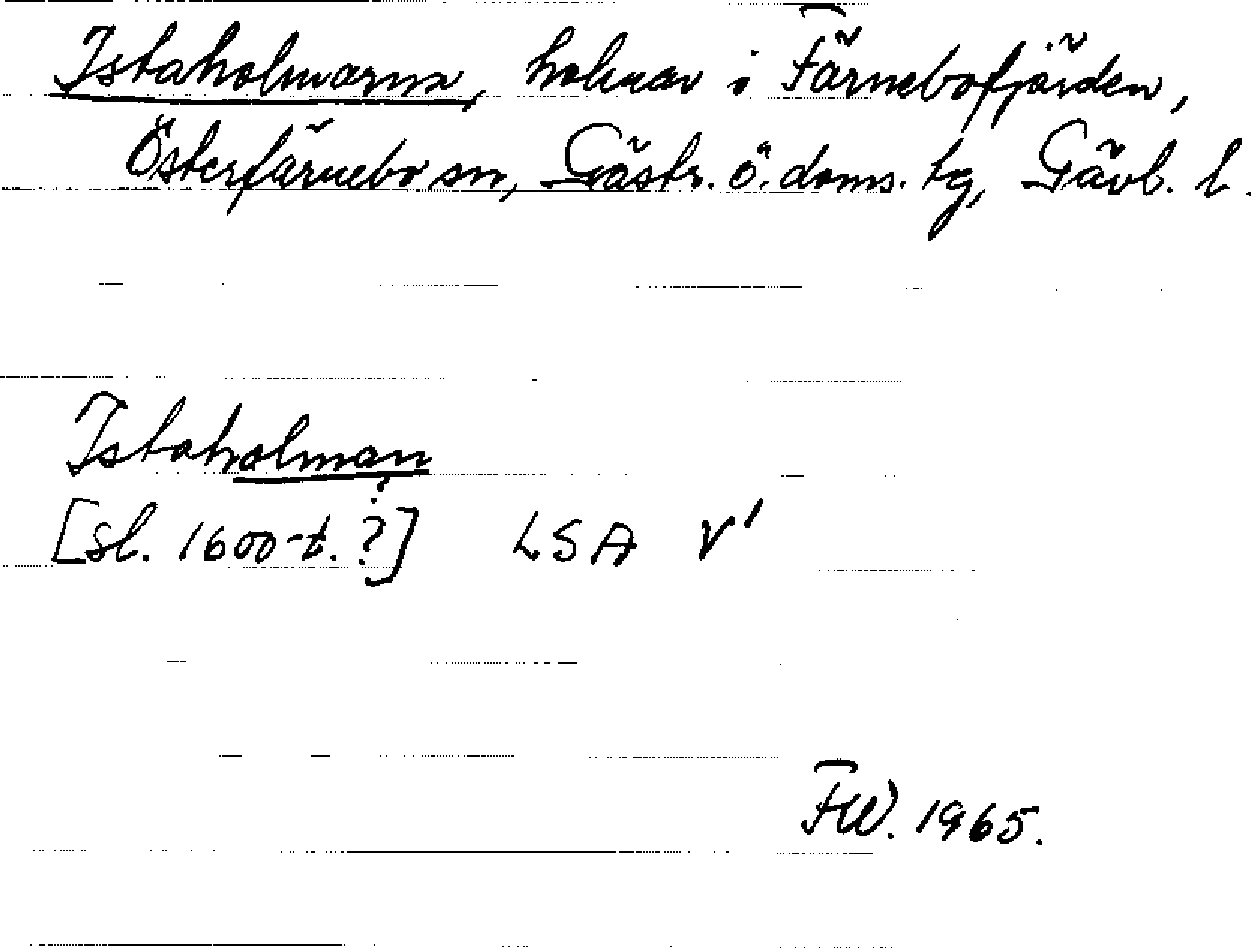 Istaholmarna, holmar i Färnebofjärden,
Österfärnebo sn, Gästr. ö. doms. tg, Gävl. l.
Istaholman
[sl. 1600-t. ?] LSA V¹
FW. 1965.